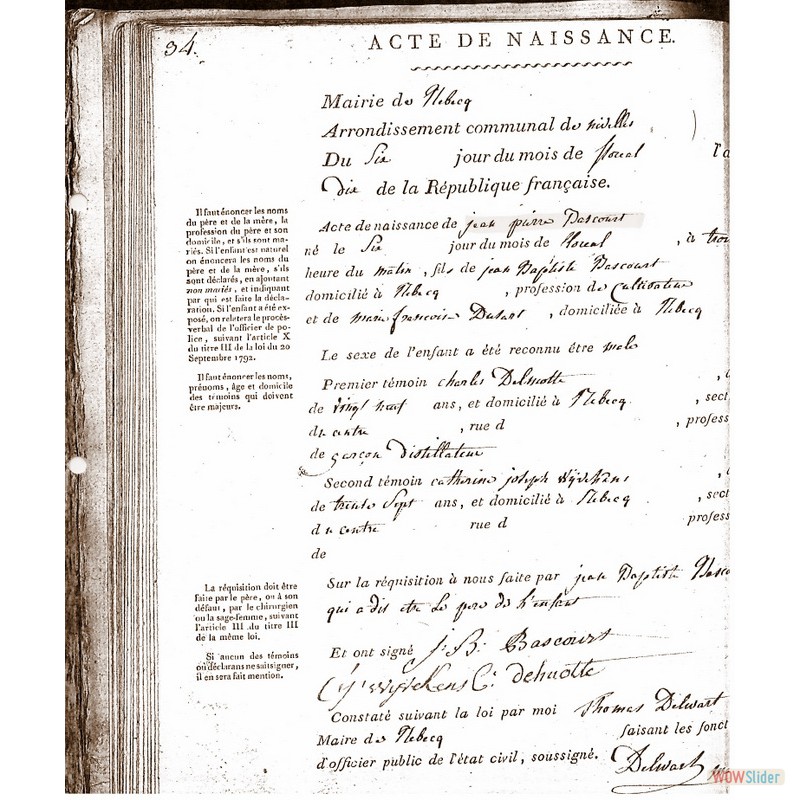 34.
ACTE DE NAISSANCE.
Mairie de Rebecq
Arrondissement communal de nivelles
Du Six jour du mois de floreal l'a
Dix de la République française.
Il faut énoncer les noms
du père et de la mère, la
profession du père et son
domicile, et s'ils sont ma-
riés. Si l'enfant est naturel
on énoncera les noms du
père et de la mère, s'ils
sont déclarés, en ajoutant
non mariés, et indiquant
par qui est faite la décla-
ration. Si l'enfant a été ex-
posé, on relatera le procès-
verbal de l'officier de po-
lice, suivant l'article X
du titre III de la loi du 20
Septembre 1792.
Il faut énoncer les noms,
prénoms, âge et domicile
des témoins qui doivent
être majeurs.
Acte de naissance de jean pierre Bascourt
né le Six jour du mois de floreal , à trois
heure du matin , fils de jean Baptiste Bascourt
domicilié à Rebecq , profession de Cultivateur
et de marie francoise Dusart , domiciliée à Rebecq
Le sexe de l'enfant a été reconnu être male
Premier témoin charles Delmotte ,
de vingt neuf ans, et domicilié à Rebecq , sect
du centre , rue d , profess
de garçon distillateur
Second témoin catherine joseph Wyvekens ,
de trente Sept ans, et domicilié à Rebecq , sect
du centre rue d profess
de
La réquisition doit être
faite par le père, ou à son
défaut, par le chirurgien
ou la sage-femme, suivant
l'article III du titre III
de la même loi.
Si aucun des témoins
ou déclarans ne sait signer,
il en sera fait mention.
Sur la réquisition à nous faite par jean Baptiste Basco
qui a dit etre Le pere de L'enfant
Et ont signé J: B: Bascourt
C J wyvekens C: delmotte
Constaté suivant la loi par moi Thomas Delwart
Maire de Rebecq faisant les fonct
d'officier public de l'état civil, soussigné. Delwart
WOWSlider